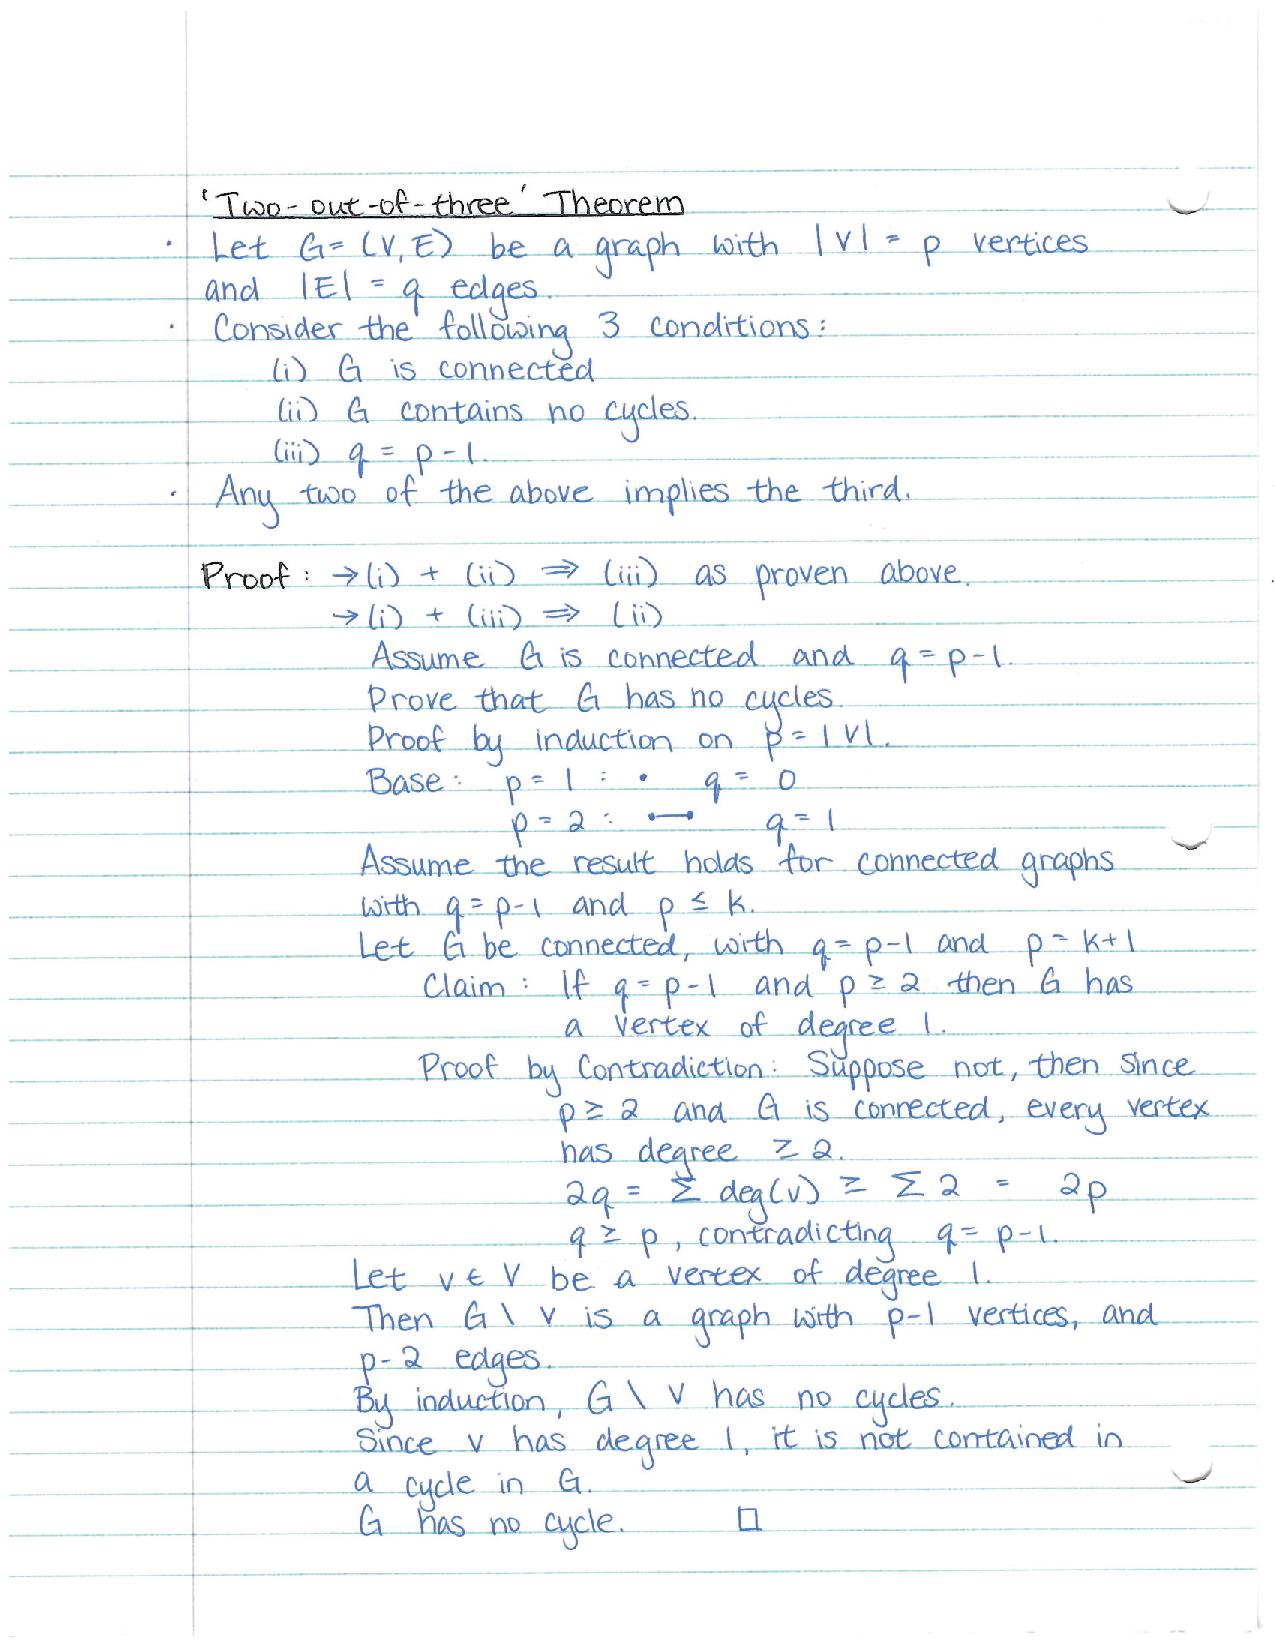 'Two-out-of-three' Theorem
· Let G=(V,E) be a graph with |V| = p vertices
and |E| = q edges.
· Consider the following 3 conditions:
(i) G is connected
(ii) G contains no cycles.
(iii) q = p-1.
· Any two of the above implies the third.
Proof: →(i) + (ii) ⇒ (iii) as proven above.
→(i) + (iii) ⇒ (ii)
Assume G is connected and q=p-1.
Prove that G has no cycles.
Proof by induction on p=|V|.
Base: p=1: • q=0
p=2: q=1
Assume the result holds for connected graphs
with q=p-1 and p ≤ k.
Let G be connected, with q=p-1 and p=k+1
Claim: If q=p-1 and p≥2 then G has
a vertex of degree 1.
Proof by Contradiction: Suppose not, then since
p≥2 and G is connected, every vertex
has degree ≥2.
2q = Σ deg(v) ≥ Σ2 = 2p
q ≥ p, contradicting q=p-1.
Let v ∈ V be a vertex of degree 1.
Then G\v is a graph with p-1 vertices, and
p-2 edges.
By induction, G\v has no cycles.
Since v has degree 1, it is not contained in
a cycle in G.
G has no cycle. □